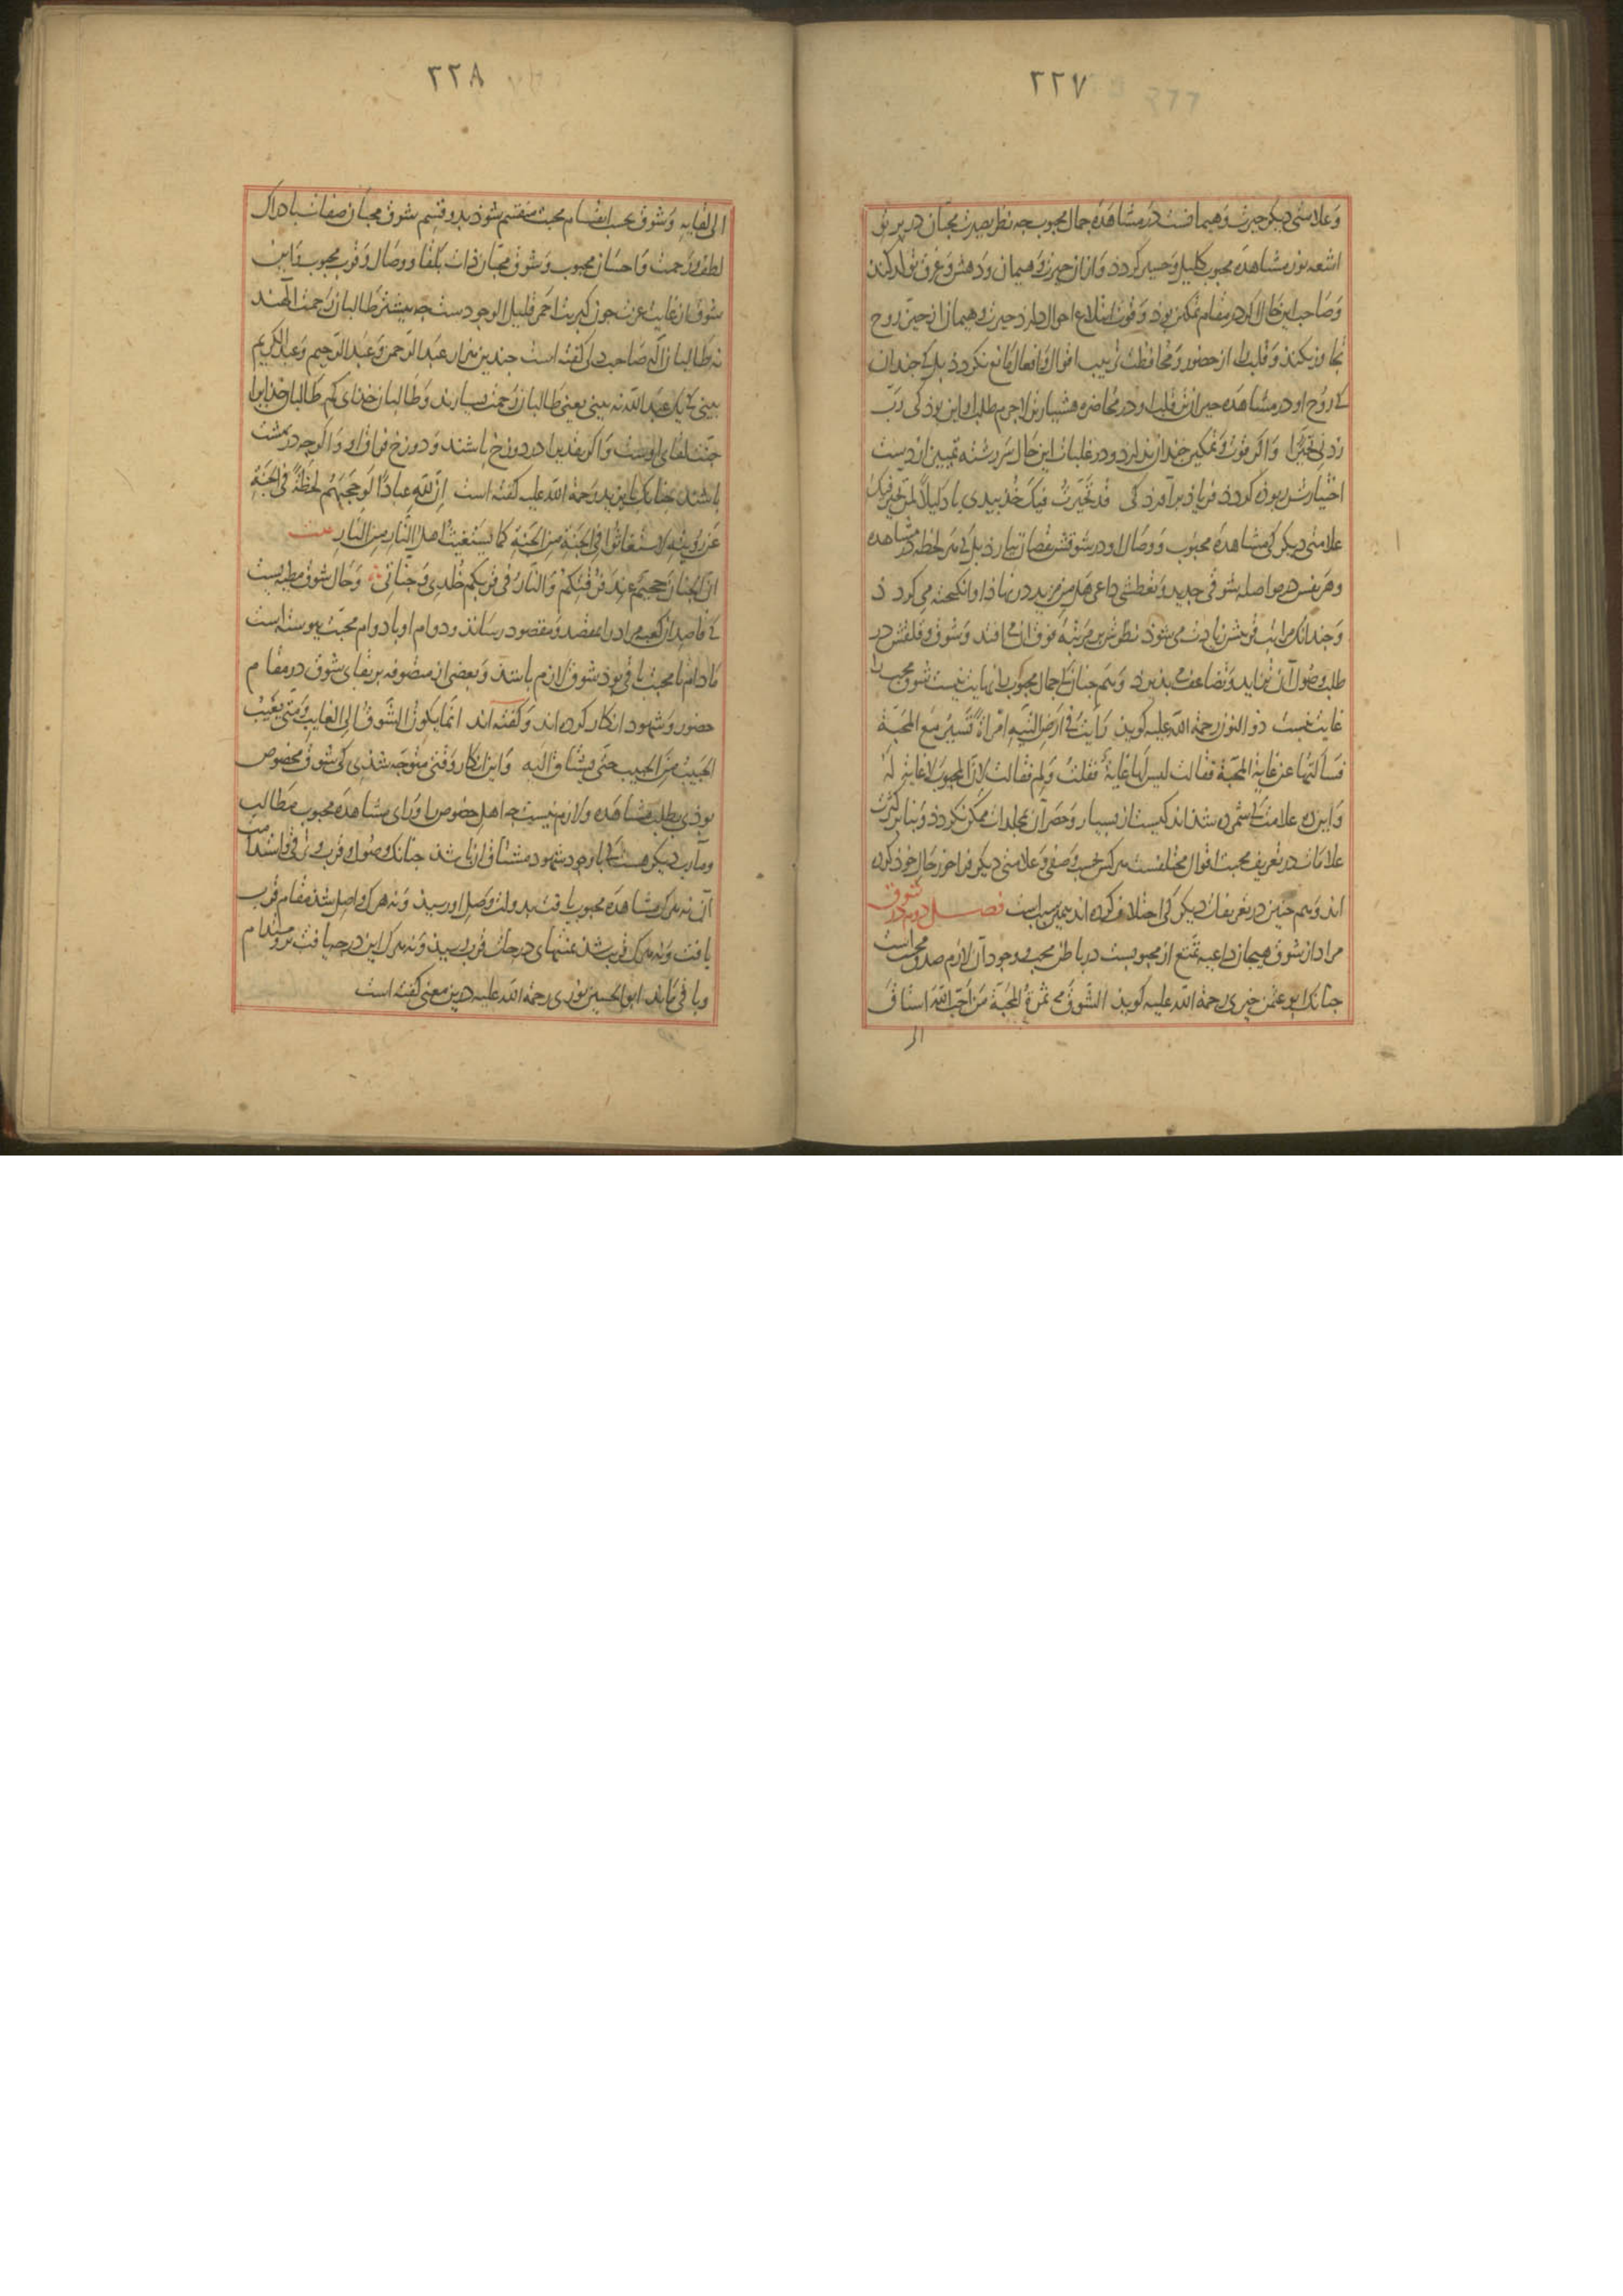 ٢٢٧
وَعلامتی دیکر حیرت و هیمانست در مشاهدهٔ جمال محبوب چه نظر بصیرت محبّان در پرتو
اشعهٔ نور مشاهدهٔ محبوب کلیل و حسیر کردد وَازان حیرت و هیمان و دهش و غرق تولد کند
وَصاحب این حال اکر در مقام تمکین بوذ و قوت ابتلاع احوال دارد حیرت و هیمان از حیّز روح
تجاوز نکند وَقلب را از حضور وَمحافظت ترتیب اقوال و افعال مانع نکردد بل که جندان
که روح او در مشاهده حیران‌تر قلب او در محاضره هشیارتر لاجرم مطلب او این بوذ کی رَبّ
زدنی تحیّرا وَاکر قوت و تمکین جندان ندارد و در غلبات این حال سررشتهٔ تمییز از دست
اختیارش ربوده کردد فریاذ برآورد کی قد تحیّرتُ فیکَ خُذ بیدی یا دلیلاً لمن تحیّر فیکَ
علامتی دیکر کی مشاهدهٔ محبوب و وصال او در شوقش نقصان نیارد بل که هر لحظه در مشاهده
وهر نفس در مواصله شوقی جدید و تعطشی داعی هل من مزید در نهاذ او انکیخته می کردد
وَجندانک مراتب قربش زیادت می شوذ نظرش بر مرتبهٔ فوق آن می افتد وَشوق و قلقش در
طلب وصول آن می‌زاید وَتضاعف می بذیرد وَهم جنان که جمال محبوب را نهایت نیست شوق محب را
غایت نیست ذو النون رحمة اللّه علیه کوید رَأیتُ فی ارَض التیه امْرأةً تَسیرُ مَعَ المحَبّة
فسَألتها عن غایة المحبّة فقالت لیس لها غایةٌ فقلت وَلِم فقالت لانّ المحبوب لا غایة لهُ
وَاین ده علامت که شمرده شد اندکیست از بسیار وَحصر آن بمجلدات ممکن نکردد وَبنا بر کثرت
علامات در تعریف محبت اقوال مختلفست هر کس بحسب وصفی و علامتی دیکر فراخور حال خوذ کرده
اند وَهم جنین در تعریفات دیکر کی اختلاف کرده اند همین سبب است فصـــل دوم در شوق
مراد از شوق هیجان داعیهٔ تمتّع از محبوبست در باطن محب و وجود آن لازم صدق محبّت است
جنانک ابو عثمن حیری رحمة اللّه علیه کوید الشّوقُ ثمرةُ المحَبّة مَن اَحَبّ اللّهَ اشتاقَ
الی
٢٢٨
الی لقایهِ وَشوق بحسب انقسام محبت منقسم شوذ بدو قسم شوق محبّان صفات بادراک
لطف و رحمت وَاحسان محبوب وَشوق محبّان ذات بلقا و وصال وَقرب محبوب وَاین
شوق از غایت عزت جون کبریت احمر قلیل الوجودست جه بیشتر طالبان رحمت الٓهند
نه طالبان الٓه صاحب دلی کفته است جندین هزار عبد الرّحمن وَعبد الرّحیم وَعبد الکریم
بینی که یک عبد اللّه نه بینی یعنی طالبان رحمت بسیارند وَطالبان خدای کم طالبان خدایرا
جنّت لقای اوست وَاکر بتقدیر در دوزخ باشند وَدوزخ فراق او وَاکر جه در بهشت
باشند جنانک بایزید رحمة اللّه علیه کفته است اِنّ للّهِ عِبادًا لَو حَجَبَهُم لحظةً فی الجنّة
عَن رُؤیتِهِ لاستغاثوا فی الجنّةِ مِن الجنّةِ کما یستغیث اهل النّار مِن النّارِ بیت
انّ الجِنانَ جحیمٌ عِندَ فُرقتِکُم وَالنّارُ فی قربکم خُلدی وَجنّاتی وَحال شوق مطیّه‌ایست
که قاصدان کعبهٔ مراد را بمقصد و مقصود رساند و دوام او با دوام محبّت پیوسته است
مادام تا محبت باقی بوذ شوق لازم باشد وَبعضی از متصوفه بر بقای شوق در مقام
حضور وَشهود انکار کرده اند وَکفته اند انّما یکونُ الشّوقُ اِلی الغایب وَمتی یَغیبُ
الحَبیبُ مِنَ الحبیب حتّی یشتاق الَیه وَاین انکار وقتی متوجّه شدی کی شوق مخصوص
بوذی بطلب مشاهده ولازم نیست جه اهل خصوص را ورای مشاهدهٔ محبوب مطالب
ومآرب دیکر هست که با وجود شهود مشتاق ان باشند جنانک وصول و قرب و ترقی و استدامت
آن نه هر که مشاهدهٔ محبوب یافت بدولت وصل او رسید وَنه هر ک واصل شد مقام قرب
یافت وَنه هر ک قریب شد بمنتهای درجات قرب رسید وَنه هر ک این درجه یافت بر وی مستدام
وباقی ماند ابو الحسین نوری رحمة اللّه علیه درین معنی کفته است